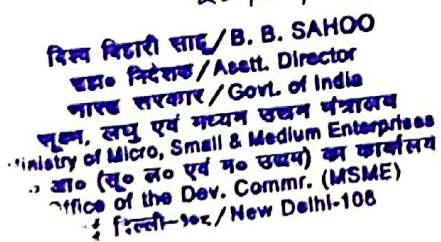 विश्व बिहारी साहु/B. B. SAHOO
सहा० निदेशक/Asstt. Director
भारत सरकार/Govt. of India
सूक्ष्म, लघु एवं मध्यम उद्यम मंत्रालय
inistry of Micro, Small & Medium Enterprises
आ० (सू० ल० एवं म० उद्यम) का कार्यालय
ffice of the Dev. Commr. (MSME)
दिल्ली-१०८/New Delhi-108